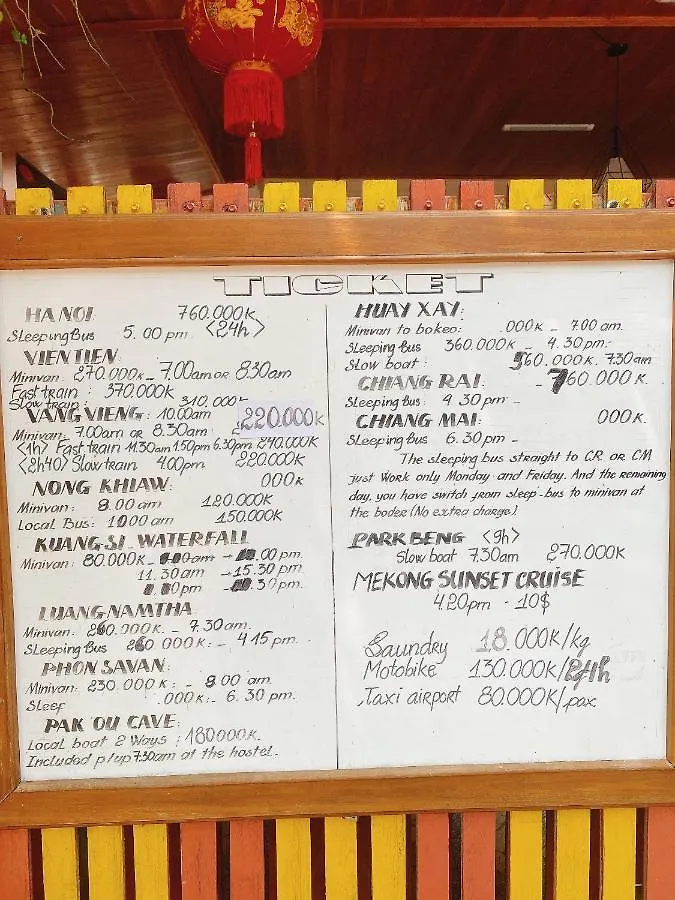 TICKET
HA NOI: 760.000K
Sleeping Bus 5.00 pm <24h>
VIENTIEN
Minivan: 270.000K - 7.00am or 8.30am
Fast train: 370.000K
Slow train: 310.000K
VANG VIENG: 10.00am 220.000K
Minivan: 7.00am or 8.30am
<1h> Fast train 11.30am 1.50pm 6.30pm 240.000K
<2h40> Slow train 4.00pm 220.000K
NONG KHIAW: 000K
Minivan: 8.00 am 120.000K
Local Bus: 10.00 am 150.000K
KUANG-SI-WATERFALL
Minivan: 80.000K - .00 pm
11.30am → 15.30 pm.
.00pm → .30 pm.
LUANG NAMTHA
Minivan: 260.000K - 7.30am.
Sleeping Bus 260 000K - 4.15 pm.
PHON SAVAN:
Minivan: 230 000K: - 8.00 am
Sleep .000K: - 6.30 pm.
PAK OU CAVE:
Local boat 2 Ways: 180000K.
Included p/up 7.30am at the hostel.
HUAY XAY:
Minivan to bokeo: .000K - 7.00 am.
Sleeping Bus 360.000K - 4.30 pm.
Slow boat: 560.000K. 7.30am
CHIANG RAI: - 760.000K.
Sleeping Bus: 4.30 pm -
CHIANG MAI: 000K.
Sleeping Bus 6.30 pm -
The sleeping bus straight to CR OR CM
just Work only Monday and Friday. And the remaining
day, you have switch from sleep-bus to minivan at
the boder (No extra charge)
PARK BENG <9h>
Slow boat 7.30am 270.000K
MEKONG SUNSET CRUISE
4.20pm - 10$
Laundry 18.000K/kg
Motobike 130.000K/24h
Taxi airport 80.000K/pax